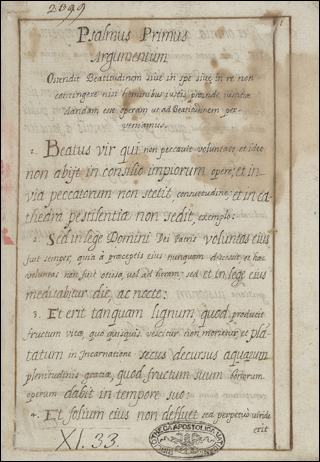 2099
1
Psalmus Primus
Argumentum
Ostendit Beatitudinem sive in spe sive in re non
contingere nisi hominibus iustis proinde
dandam esse operam ut ad Beatitudinem per-
veniamus.
1. Beatus vir qui non peccavit voluntate et ideo
non abijt in consilio impiorum opere, et in
via peccatorum non stetit consuetudine, et in ca-
thedra pestilentiæ non sedit, exemplo:
2. Sed in lege Domini Dei Patris voluntas eius
fuit semper, quia à præceptis eius nunquam discessit, et hæc
voluntas non fuit otiosa, vel ad horam, sed et in lege eius
meditabitur die, ac nocte:
3. Et erit tanquam lignum quod producit
fructum vitæ, quo quisquis vescitur non morietur, et pla-
tatum in Incarnatione secus decursus aquarum
plenitudinis gratiæ, quod fructum suum bonorum
operum dabit in tempore suo.
4. Et folium eius non defluet sed perpetuò viride
erit
XI. 33.